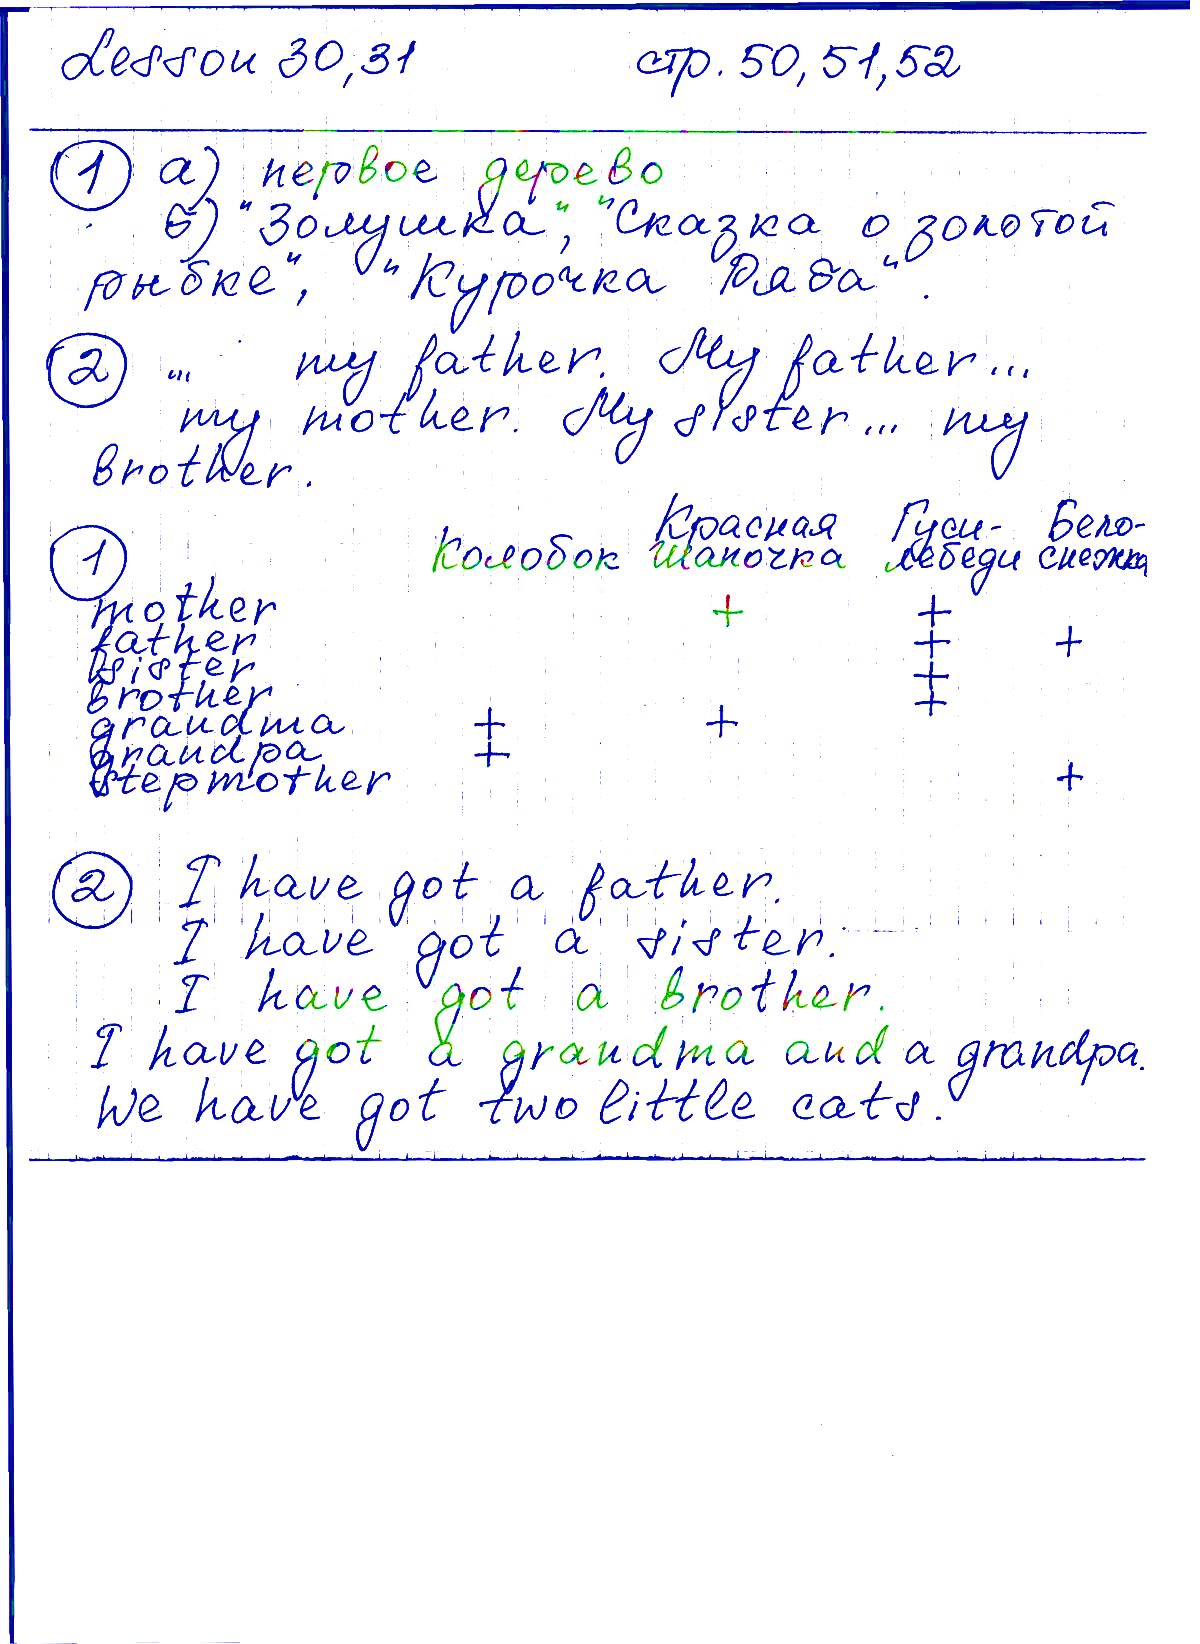 Lesson 30, 31 стр. 50, 51, 52
1 а) первое дерево
б) "Золушка", "Сказка о золотой
рыбке", "Курочка Ряба".
2 ... my father. My father...
my mother. My sister... my
brother.
1 Колобок Красная Шапочка Гуси-лебеди Бело-снежка
mother + +
father + +
sister +
brother +
grandma + +
grandpa +
stepmother +
2 I have got a father.
I have got a sister.
I have got a brother.
I have got a grandma and a grandpa.
We have got two little cats.